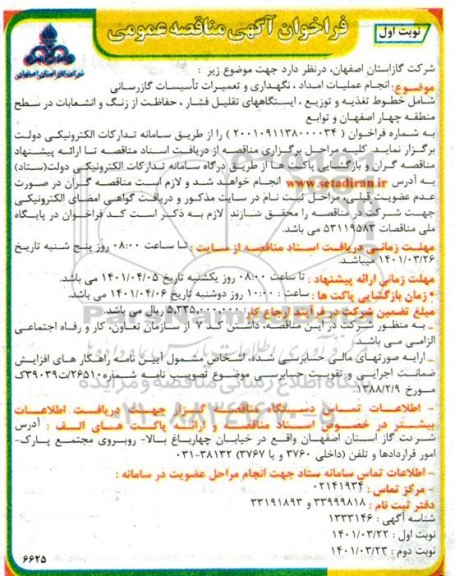 نوبت اول
فراخوان آگهی مناقصه عمومی
شرکت گاز استان اصفهان
شرکت گازاستان اصفهان، درنظر دارد جهت موضوع زیر :
موضوع: انجام عملیات امداد ، نگهداری و تعمیرات تأسیسات گازرسانی
شامل خطوط تغذیه و توزیع ، ایستگاههای تقلیل فشار ، حفاظت از زنگ و انشعابات در سطح
منطقه چهار اصفهان و توابع
به شماره فراخوان ( ۲۰۰۱۰۹۱۱۳۸۰۰۰۰۳۴ ) را از طریق سامانه تدارکات الکترونیکی دولت
برگزار نماید. کلیه مراحل برگزاری مناقصه از دریافت اسناد مناقصه تا ارائه پیشنهاد
مناقصه گران و بازگشایی پاکت ها از طریق درگاه سامانه تدارکات الکترونیکی دولت(ستاد)
به آدرس www.setadiran.ir انجام خواهد شد و لازم است مناقصه گران در صورت
عدم عضویت قبلی، مراحل ثبت نام در سایت مذکور و دریافت گواهی امضای الکترونیکی
جهت شرکت در مناقصه را محقق سازند لازم به ذکر است کد فراخوان در پایگاه
ملی مناقصات ۵۳۱۱۹۵۸۳ می باشد.
مهلت زمانی دریافت اسناد مناقصه از سایت : تا ساعت ۰۸:۰۰ روز پنج شنبه تاریخ
۱۴۰۱/۰۳/۲۶ میباشد.
مهلت زمانی ارائه پیشنهاد : تا ساعت ۰۸:۰۰ روز یکشنبه تاریخ ۱۴۰۱/۰۴/۰۵ می باشد.
* زمان بازگشایی پاکت ها : ساعت : ۱۰:۰۰ روز دوشنبه تاریخ ۱۴۰۱/۰۴/۰۶ می باشد.
مبلغ تضمین شرکت در فرآیند ارجاع کار: ۵,۲۳۵,۰۰۰,۰۰۰ ریال می باشد.
ـ به منظور شرکت در این مناقصه، داشتن کد ۷ از سازمان تعاون، کار و رفاه اجتماعی
الزامی می باشد.
ـ ارایه صورتهای مالی حسابرسی شده، اشخاص مشمول آیین نامه راهکار های افزایش
ضمانت اجرایی و تقویت حسابرسی موضوع تصویب نامه شماره ۲۶۵۱۰/ت۳۹۰۳۹ک
مورخ ۱۳۸۸/۲/۹.
- اطلاعات تماس دستگاه مناقصه گزار جهت دریافت اطلاعات
بیشتر در خصوص اسناد مناقصه و ارائه پاکت های الف : آدرس
شرکت گاز استان اصفهان واقع در خیابان چهارباغ بالا- روبروی مجتمع پارک-
امور قراردادها و تلفن (داخلی ۳۷۶۰ و یا ۳۷۶۷) ۳۸۱۳۲-۰۳۱
- اطلاعات تماس سامانه ستاد جهت انجام مراحل عضویت در سامانه :
- مرکز تماس : ۰۲۱۴۱۹۳۴
دفتر ثبت نام : ۳۳۹۹۹۸۱۸ و ۳۳۱۹۱۸۹۳
شناسه آگهی : ۱۳۳۳۱۴۶
نوبت اول : ۱۴۰۱/۰۳/۲۲
نوبت دوم : ۱۴۰۱/۰۳/۲۳
۶۶۲۵